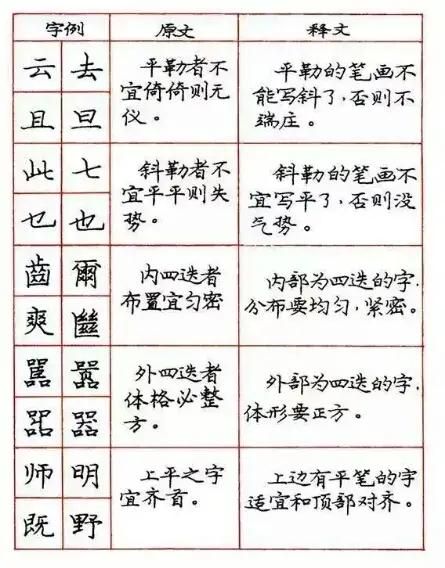 字例 原文 释文
云 去
且 旦
平勒者不
宜倚倚则无
仪。
平勒的笔画不
能写斜了,否则不
端庄。
此 七
乜 也
斜勒者不
宜平平则失
势。
斜勒的笔画不
宜写平了,否则没
气势。
齒 爾
爽
内四迭者
布置宜匀密
内部为四迭的字,
分布要均匀,紧密。
嚣
噐 器
外四迭者
体格必整
方。
外部为四迭的字,
体形要正方。
师 明
既 野
上平之字
宜齐首。
上边有平笔的字
适宜和顶部对齐。